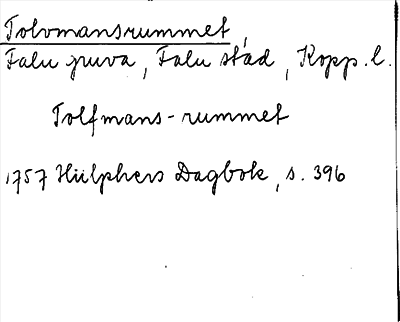 Tolvmansrummet,
Falu gruva, Falu stad, Kopp. l.
Tolfmans-rummet
1757 Hülphers Dagbok, s. 396